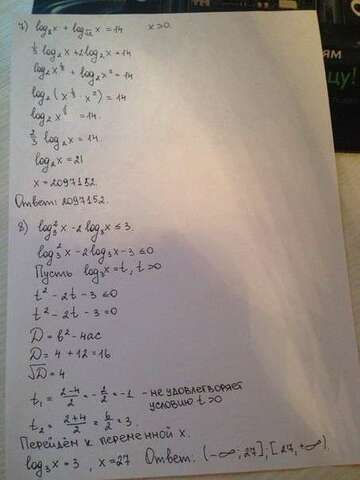 7) log₈x + log_√2 x = 14    x>0.
⅓ log₂x + 2log₂x = 14
log₂x^⅓ + log₂x² = 14
log₂(x^⅓ · x²) = 14
log₂x^ = 14.
log₂x = 14.
log₂x = 21
x = 2097152.
Ответ: 2097152.
8) log₃²x - 2log₃x ≤ 3.
log₃²x - 2log₃x - 3 ≤ 0
Пусть log₃x = t, t>0
t² - 2t - 3 ≤ 0
t² - 2t - 3 = 0
D = b² - 4ac
D = 4 + 12 = 16
√D = 4
t₁ = (2-4)/2 = -2/2 = -1 - не удовлетворяет
условию t>0
t₂ = (2+4)/2 = 6/2 = 3.
Перейдём к переменной x.
log₃x = 3, x = 27. Ответ: (-∞; 27]; [27, +∞)